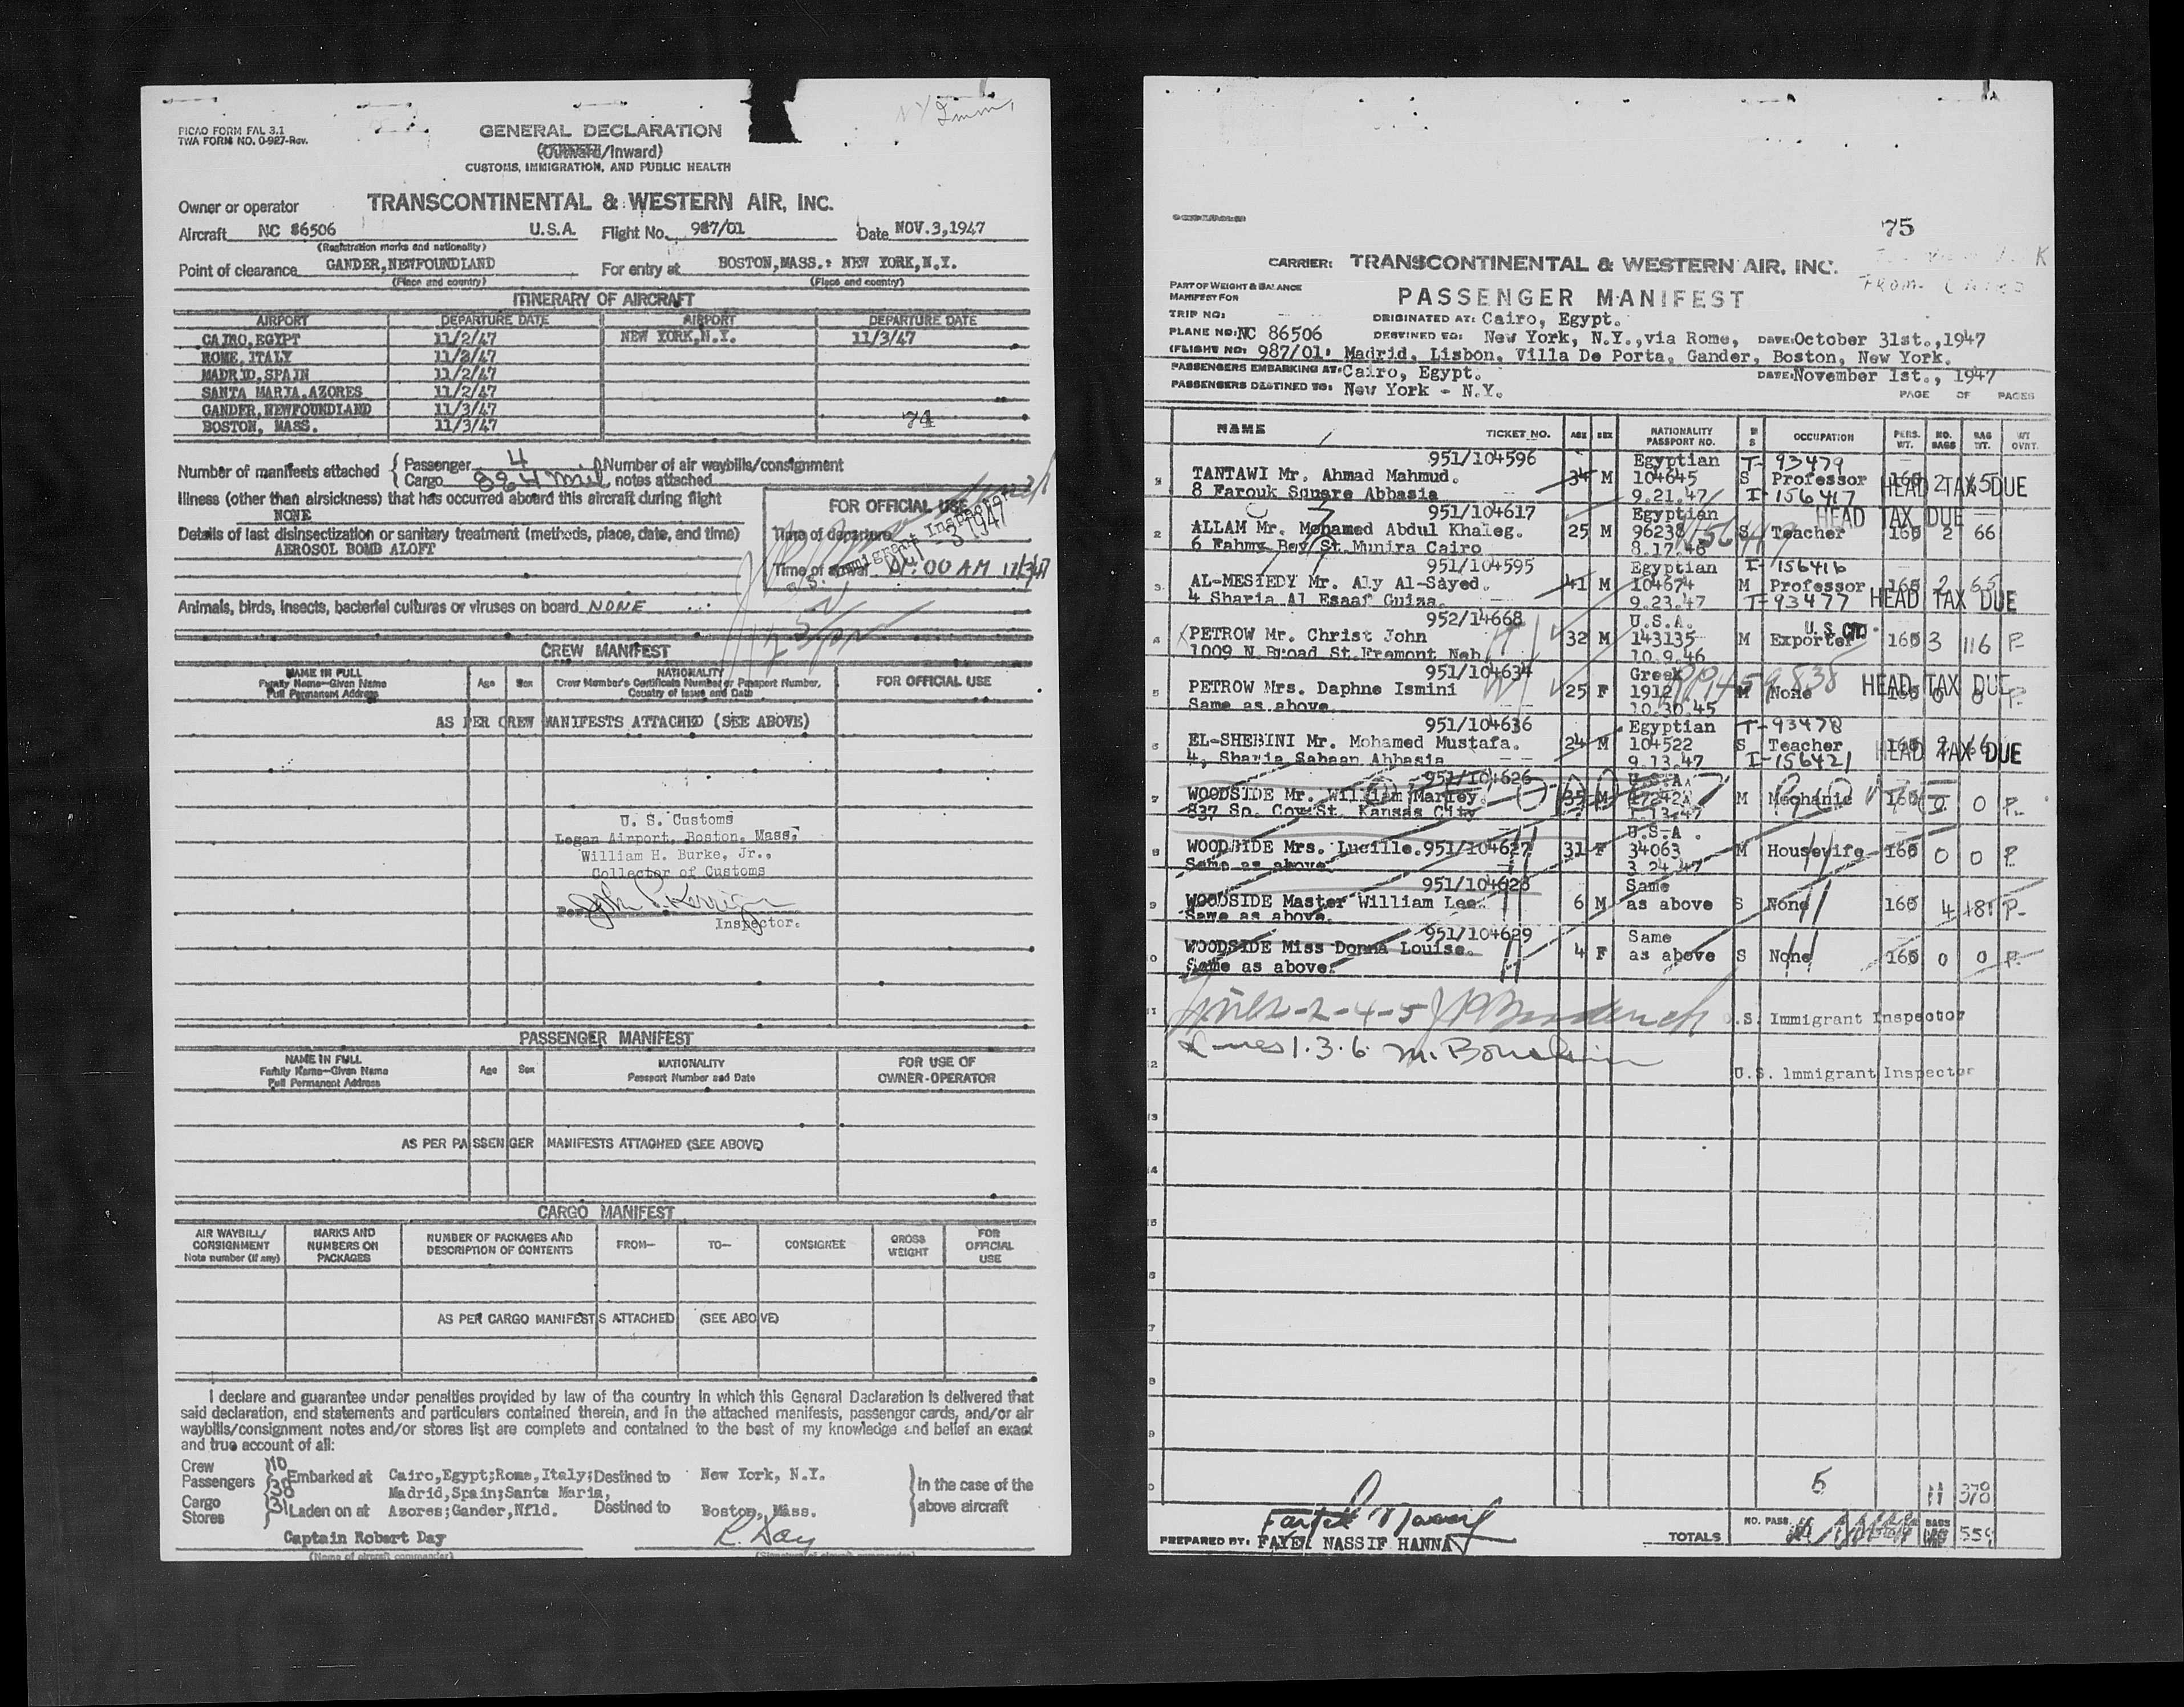 NY Imm.
PICAO FORM FAL 3.1
TWA FORM NO. O-927-Rev.
GENERAL DECLARATION
(Outward/Inward)
CUSTOMS, IMMIGRATION, AND PUBLIC HEALTH
Owner or operator TRANSCONTINENTAL & WESTERN AIR, INC.
Aircraft NC 86506 U.S.A. Flight No. 987/01 Date NOV.3,1947
(Registration marks and nationality)
Point of clearance GANDER,NEWFOUNDLAND For entry at BOSTON,MASS.: NEW YORK,N.Y.
(Place and country) (Place and country)
ITINERARY OF AIRCRAFT
AIRPORT DEPARTURE DATE AIRPORT DEPARTURE DATE
CAIRO,EGYPT 11/2/47 NEW YORK,N.Y. 11/3/47
ROME,ITALY 11/2/47
MADRID,SPAIN 11/2/47
SANTA MARIA.AZORES 11/2/47
GANDER,NEWFOUNDLAND 11/3/47
BOSTON, MASS. 11/3/47 74
Number of manifests attached { Passenger 4 Number of air waybills/consignment
Cargo notes attached
Illness (other than airsickness) that has occurred aboard this aircraft during flight
NONE
Details of last disinsectization or sanitary treatment (methods, place, date, and time)
AEROSOL BOMB ALOFT
FOR OFFICIAL USE
Time of departure
Time of arrival 11/3/47
U.S. Immigrant Inspector
3 1947
Animals, birds, insects, bacterial cultures or viruses on board NONE
CREW MANIFEST
NAME IN FULL
Family Name—Given Name
Full Permanent Address
Age Sex
NATIONALITY
Crew Member's Certificate Number or Passport Number,
Country of Issue and Date
FOR OFFICIAL USE
AS PER CREW MANIFESTS ATTACHED (SEE ABOVE)
U. S. Customs
Logan Airport, Boston, Mass.
William H. Burke, Jr.,
Collector of Customs
Per
Inspector.
PASSENGER MANIFEST
NAME IN FULL
Family Name—Given Name
Full Permanent Address
Age Sex
NATIONALITY
Passport Number and Date
FOR USE OF
OWNER-OPERATOR
AS PER PASSENGER MANIFESTS ATTACHED (SEE ABOVE)
CARGO MANIFEST
AIR WAYBILL/
CONSIGNMENT
Note number (if any)
MARKS AND
NUMBERS ON
PACKAGES
NUMBER OF PACKAGES AND
DESCRIPTION OF CONTENTS
FROM— TO— CONSIGNEE
GROSS
WEIGHT
FOR
OFFICIAL
USE
AS PER CARGO MANIFESTS ATTACHED (SEE ABOVE)
I declare and guarantee under penalties provided by law of the country in which this General Declaration is delivered that
said declaration, and statements and particulars contained therein, and in the attached manifests, passenger cards, and/or air
waybills/consignment notes and/or stores list are complete and contained to the best of my knowledge and belief an exact
and true account of all:
Crew 10
Passengers Embarked at Cairo,Egypt;Rome,Italy; Destined to New York, N.Y. In the case of the
Madrid,Spain;Santa Maria,
Cargo Laden on at Azores;Gander,Nfld. Destined to Boston, Mass. above aircraft
Stores
Captain Robert Day R. Day
(Name of aircraft commander) (Signature of aircraft commander)
75
CARRIER: TRANSCONTINENTAL & WESTERN AIR, INC.
From Cairo
PART OF WEIGHT & BALANCE
MANIFEST FOR
PASSENGER MANIFEST
TRIP NO: ORIGINATED AT: Cairo, Egypt.
PLANE NO: NC 86506 DESTINED TO: New York, N.Y.,via Rome, DATE: October 31st.,1947
(FLIGHT NO: 987/01. Madrid, Lisbon, Villa De Porta, Gander, Boston, New York.
PASSENGERS EMBARKING AT: Cairo, Egypt. DATE: November 1st., 1947
PASSENGERS DESTINED TO: New York - N.Y. PAGE OF PAGES
NAME TICKET NO. AGE SEX NATIONALITY PASSPORT NO. M S OCCUPATION PERS. WT. NO. BAGS BAG WT. WT OVNT.
951/104596 Egyptian T-93479
TANTAWI Mr. Ahmad Mahmud. 34 M 104645 S Professor 165 2 HEAD TAX DUE
8 Farouk Square Abbasia 9.21.47 I-156417
951/104617 Egyptian HEAD TAX DUE
2 ALLAM Mr. Mohamed Abdul Khaleg. 25 M 96238 S Teacher 165 2 66
6 Fahmy Bey St Munira Cairo 8.17.46
951/104595 Egyptian I-156416
3 AL-MESIEDY Mr. Aly Al-Sayed. 41 M 104674 M Professor 165 2 65
4 Sharia Al Esaaf Guiza. 9.23.47 T-93477 HEAD TAX DUE
952/14668 U.S.A. U.S. CIT.
4 PETROW Mr. Christ John 32 M 143135 M Exporter 165 3 116 P
1009 N.Broad St.Fremont Neb. 10.9.46
951/104634 Greek
5 PETROW Mrs. Daphne Ismini 25 F 1912 M None 165 0 0 P. HEAD TAX DUE
Same as above. 10.30.45
951/104636 Egyptian T-93478
6 EL-SHEBINI Mr. Mohamed Mustafa. 24 M 104522 S Teacher 165 HEAD TAX DUE
4, Sharia Sabaan Abbasia 9.13.47 I-156421
951/104626 U.S.A.
7 WOODSIDE Mr. William Manley. 35 M M Mechanic 165 0 0 P.
837 So. Cox St. Kansas City 1.13.47
U.S.A.
8 WOODSIDE Mrs. Lucille. 951/104627 31 F 34063 M Housewife 165 0 0 P.
Same as above. 3.24.47
951/104628 Same
9 WOODSIDE Master William Lee. 6 M as above S None 165 4 181 P.
Same as above.
951/104629 Same
WOODSIDE Miss Donna Louise. 4 F as above S None 165 0 0 P.
Same as above.
Lines-2-4-5 U.S. Immigrant Inspector
Lines 1.3.6. U.S. Immigrant Inspector
5 11 378
11 378
PREPARED BY: FAYEK NASSIF HANNA TOTALS NO. PASS. BAGS 559